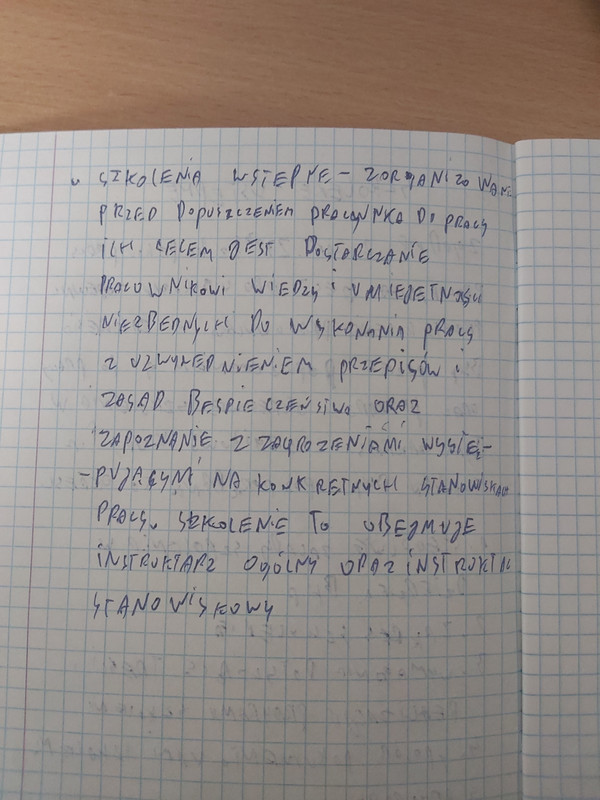 SZKOLENIA WSTĘPNE - ZORGANIZOWANE
PRZED DOPUSZCZENIEM PRACOWNIKA DO PRACY
ICH CELEM JEST DOSTARCZANIE
PRACOWNIKOWI WIEDZY I UMIEJĘTNOŚCI
NIEZBĘDNYCH DO WYKONANIA PRACY
Z UZWYHEDNIENIEM PRZEPISÓW I
ZASAD BESPIECZEŃSTWA ORAZ
ZAPOZNANIE Z ZAGROŻENIAMI WYSTĘ-
-PUJĄCYMI NA KONKRETNYCH STANOWISKACH
PRACY. SZKOLENIE TO OBEJMUJE
INSTRUKTARZ OGÓLNY ORAZ INSTRUKTAŻ
STANOWISKOWY